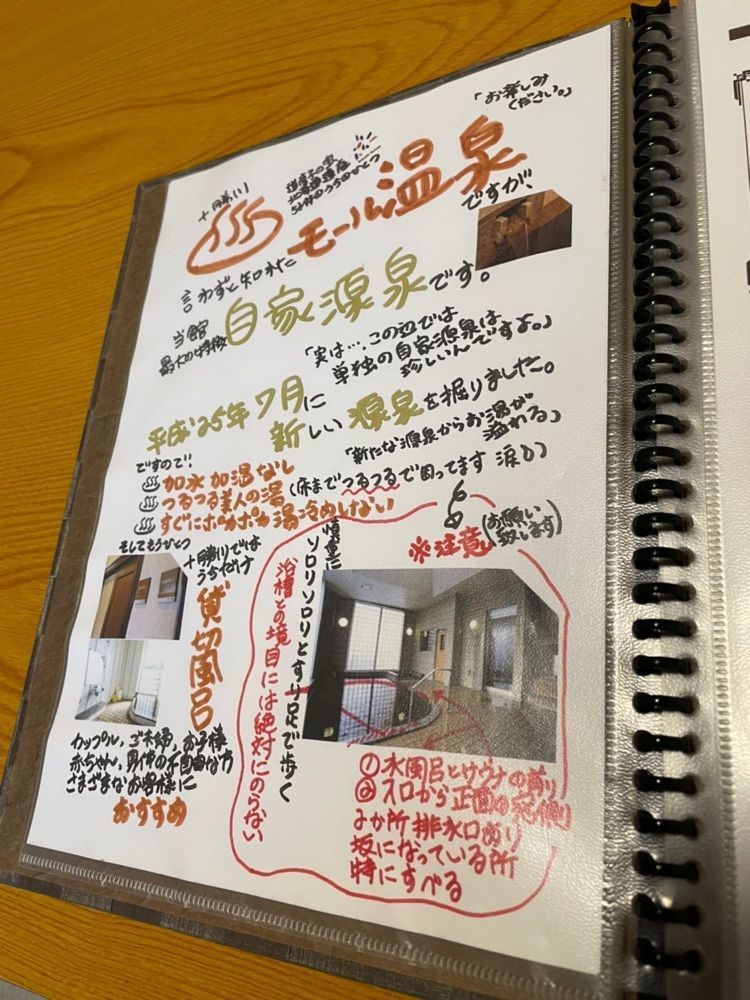 「お楽しみ
ください。」
十勝川
北海道遺産
モール温泉
ですが、
言わずと知れた
当館
最大の特徴
自家源泉です。
「実は…、この辺では
単独の自家源泉は
珍しいんですよ。」
平成25年7月に
新しい源泉を掘りました。
「新たな源泉からお湯が
溢れる」
ですので!
加水 加温なし
つるつる美人の湯(床までつるつるで困ってます 涙)
すぐにポカポカ 湯冷めしない
※注意(お願い
致します)
そしてもうひとつ
十勝川では
うちだけ
貸切風呂
カップル、ご夫婦、お子様
赤ちゃん、身体の不自由な方
さまざまなお客様に
おすすめ
慎重に
ソロリソロリとすり足で歩く
浴槽との境目には絶対にのらない
①水風呂とサウナの前
②入口から正面の
排水口あり
坂になっている所
特にすべる